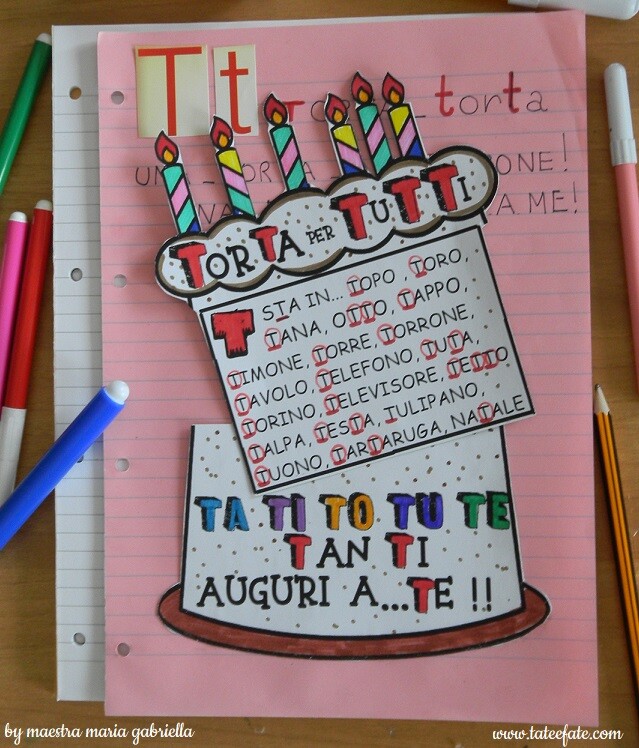 T t
torta
UN
ONE!
A ME!
TORTA PER TUTTI
T STA IN... TOPO, TORO,
TANA, OTTO, TAPPO,
TIMONE, TORRE, TORRONE,
TAVOLO, TELEFONO, TUTA,
TORINO, TELEVISORE, TETTO
TALPA, TESTA, TULIPANO,
TUONO, TARTARUGA, NATALE
TA TI TO TU TE
TANTI
AUGURI A...TE !!
by maestra maria gabriella
www.tateefate.com